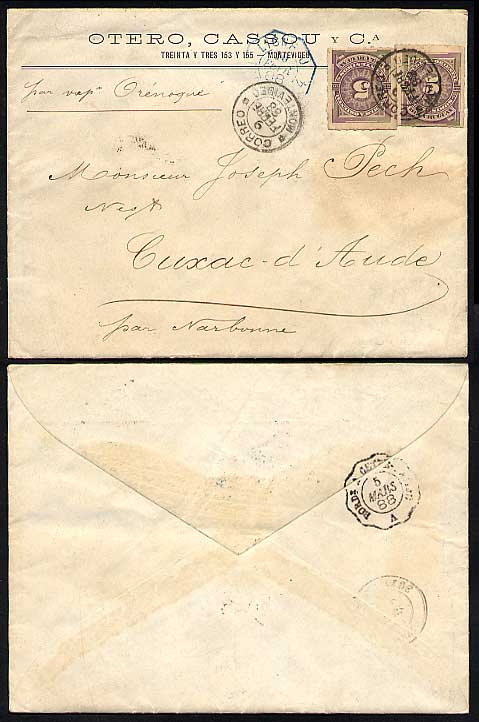 OTERO, CASSOU Y C.A
TREINTA Y TRES 153 Y 155 — MONTEVIDEO
par vapr Orénoque
CORREO
MONTEVIDEO
9
FEB
88
5
5
Monsieur Joseph Pech
Négt
Cuxac-d'Aude
par Narbonne
BORDX
5
MARS
88
A